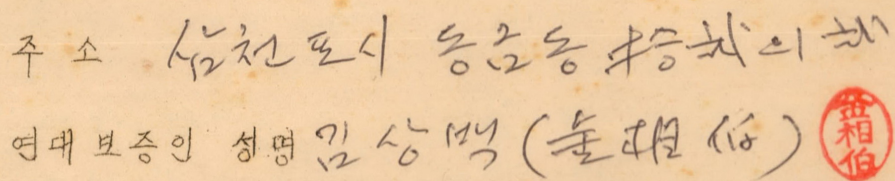 주소 삼천포시 동금동
연대보증인 성명 김상백 (金相伯)
金相伯